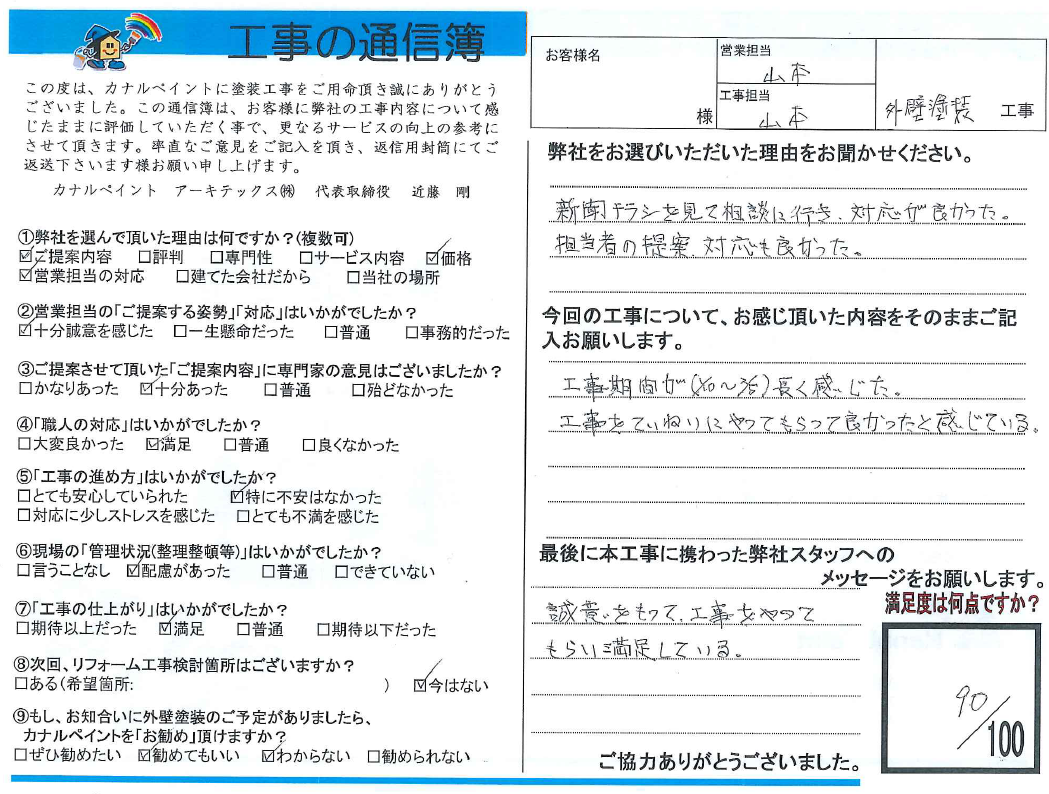 工事の通信簿
この度は、カナルペイントに塗装工事をご用命頂き誠にありがとう
ございました。この通信簿は、お客様に弊社の工事内容について感
じたままに評価していただく事で、更なるサービスの向上の参考に
させて頂きます。率直なご意見をご記入を頂き、返信用封筒にてご
返送下さいます様お願い申し上げます。
カナルペイント アーキテックス㈱ 代表取締役 近藤 剛
①弊社を選んで頂いた理由は何ですか?(複数可)
☑ご提案内容 □評判 □専門性 □サービス内容 ☑価格
☑営業担当の対応 □建てた会社だから □当社の場所
②営業担当の「ご提案する姿勢」「対応」はいかがでしたか?
☑十分誠意を感じた □一生懸命だった □普通 □事務的だった
③ご提案させて頂いた「ご提案内容」に専門家の意見はございましたか?
□かなりあった ☑十分あった □普通 □殆どなかった
④「職人の対応」はいかがでしたか?
□大変良かった ☑満足 □普通 □良くなかった
⑤「工事の進め方」はいかがでしたか?
□とても安心していられた ☑特に不安はなかった
□対応に少しストレスを感じた □とても不満を感じた
⑥現場の「管理状況(整理整頓等)」はいかがでしたか?
□言うことなし ☑配慮があった □普通 □できていない
⑦「工事の仕上がり」はいかがでしたか?
□期待以上だった ☑満足 □普通 □期待以下だった
⑧次回、リフォーム工事検討箇所はございますか?
□ある(希望箇所: ) ☑今はない
⑨もし、お知合いに外壁塗装のご予定がありましたら、
カナルペイントを「お勧め」頂けますか?
□ぜひ勧めたい ☑勧めてもいい ☑わからない □勧められない
お客様名
様
営業担当
山本
工事担当
山本
外壁塗装 工事
弊社をお選びいただいた理由をお聞かせください。
新聞チラシを見て相談に行き、対応が良かった。
担当者の提案、対応も良かった。
今回の工事について、お感じ頂いた内容をそのままご記
入お願いします。
工事期間が(10〜36)長く感じた。
工事をていねいにやってもらって良かったと感じている。
最後に本工事に携わった弊社スタッフへの
メッセージをお願いします。
誠意をもって、工事をやって
もらい満足している。
満足度は何点ですか?
90/100
ご協力ありがとうございました。